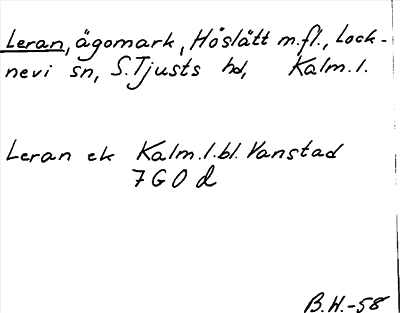 Leran, ägomark, Höslätt m.fl., Lock-
nevi sn, S. Tjusts hd, Kalm.l.
Leran ek Kalm.l.bl. Vanstad
7 G O d
B.H.-58